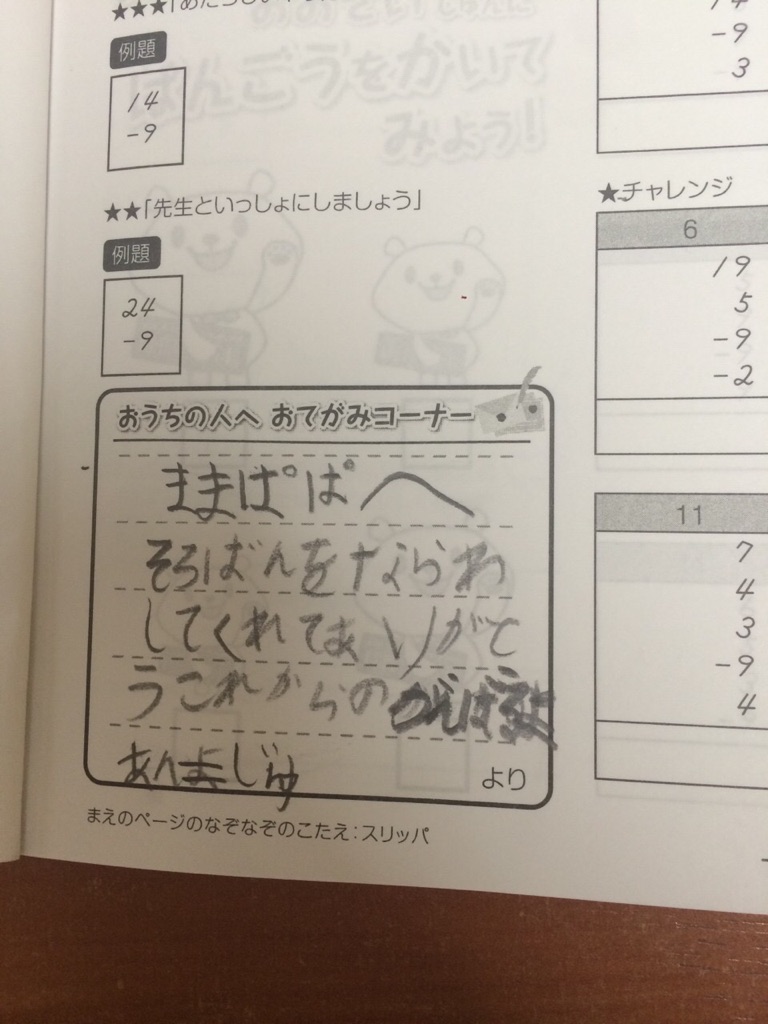 例題
14
-9
★★「先生といっしょにしましょう」
例題
24
-9
おうちの人へ おてがみコーナー
ままぱぱへ
そろばんをならわ
してくれてありがと
うこれからの
じゅ
より
まえのページのなぞなぞのこたえ:スリッパ
-9
3
★チャレンジ
6
19
5
-9
-2
11
7
4
3
-9
4